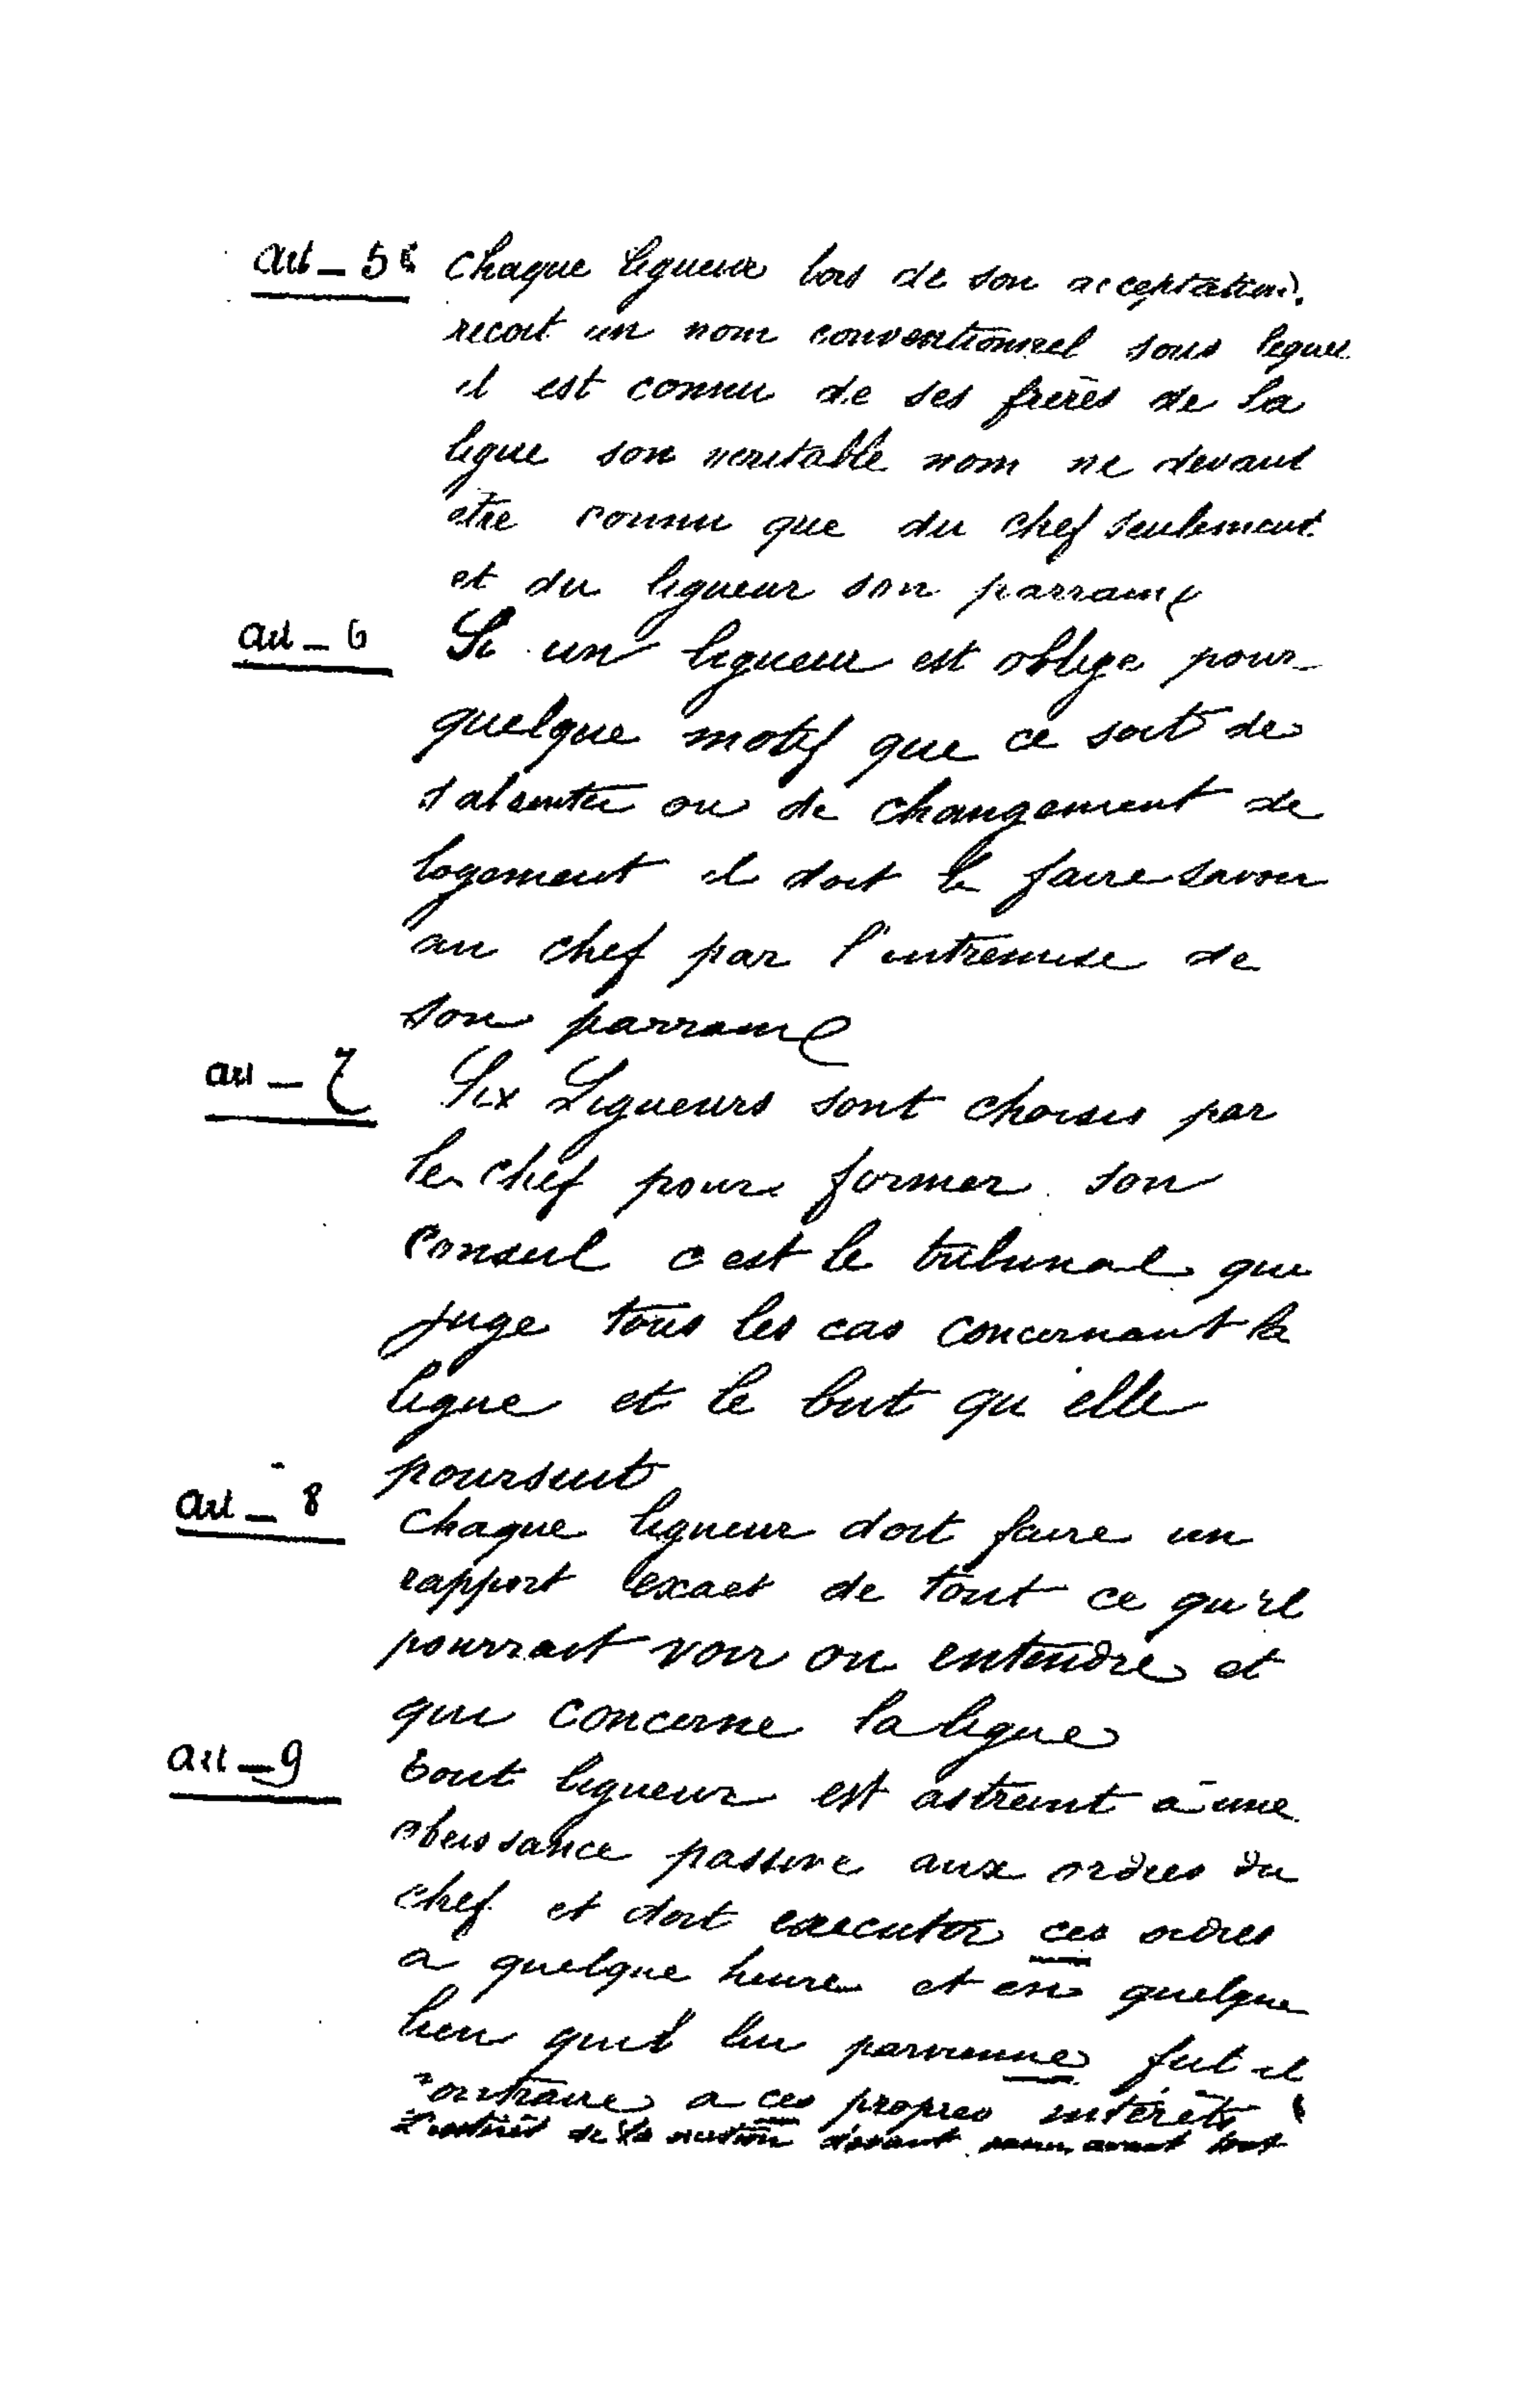 Art - 5e Chaque ligueur lors de son acceptation.
recoit un nom conventionnel sous lequel
il est connu de ses frères de la
ligue son veritable nom ne devant
etre connu que du chef seulement
et du ligueur son parrain
art - 6 Si un ligueur est oblige pour
quelque motif que ce soit de
s'absenter ou de changement de
logement il doit le faire savoir
au chef par l'entremise de
son parrain
art - 7 Six Ligueurs sont choisis par
le chef pour former son
Conseil c est le tribunal qui
juge tous les cas concernant la
ligue et le but qu'elle
poursuit
art - 8 Chaque ligueur doit faire un
rapport exact de tout ce qu'il
pourrait voir ou entendre et
qui concerne la ligue
art - 9 tout ligueur est astreint à une
obeissance passive aux ordres du
chef et doit executer ces ordres
a quelque heure et en quelque
lieu qu'il lui parvienne fut il
contraire a ces propres intérêts
L'intérêt de la nation devant avant tout